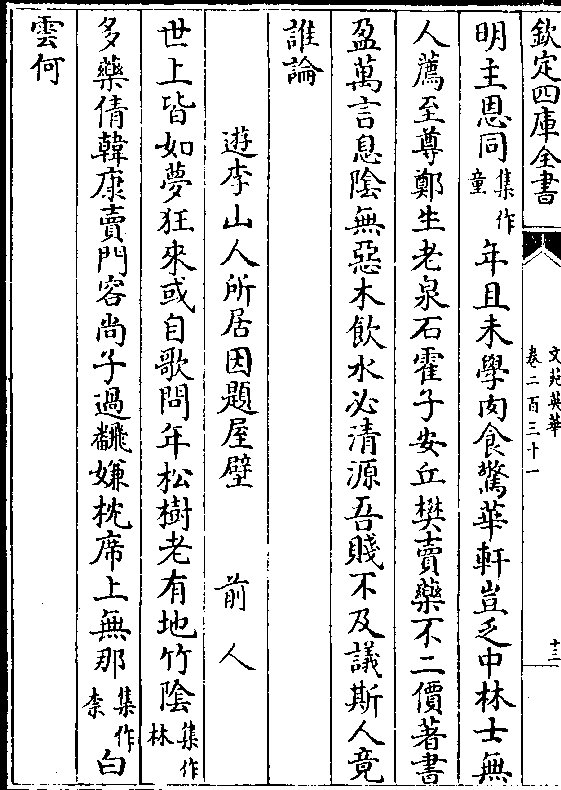 欽定四庫全書
文苑英華
卷二百三十一
十三
明主恩同集作童年且未學肉食驚華軒豈乏中林士無
人薦至尊鄭生老泉石霍子安丘樊賣藥不二價著書
盈萬言息陰無惡木飲水必清源吾賤不及議斯人竟
誰論
遊李山人所居因題屋壁 前人
世上皆如夢狂來或自歌問年松樹老有地竹陰集作林
多藥倩韓康賣門容尚子過飜嫌枕席上無那集作柰白
雲何